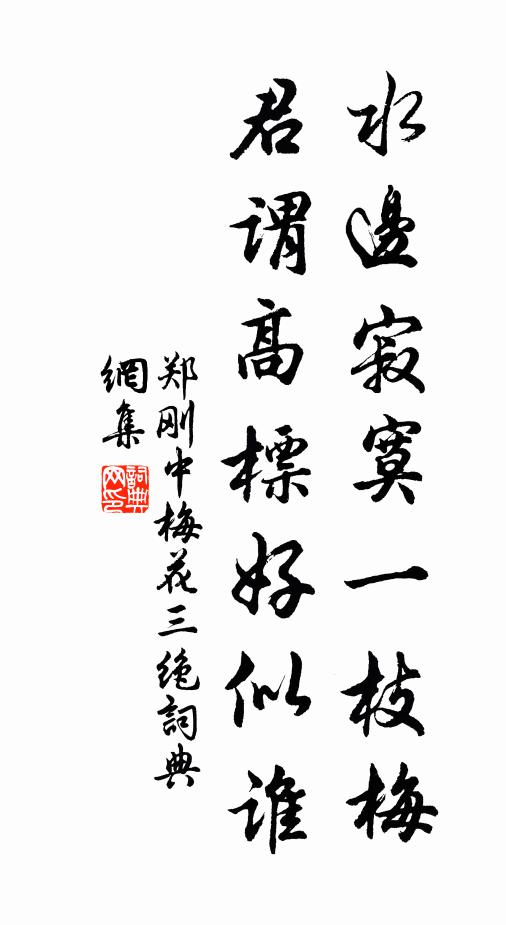 水邊寂寞一枝梅
君谓高標好似谁
郑刚中梅花三绝詞典
網集
詞典网印